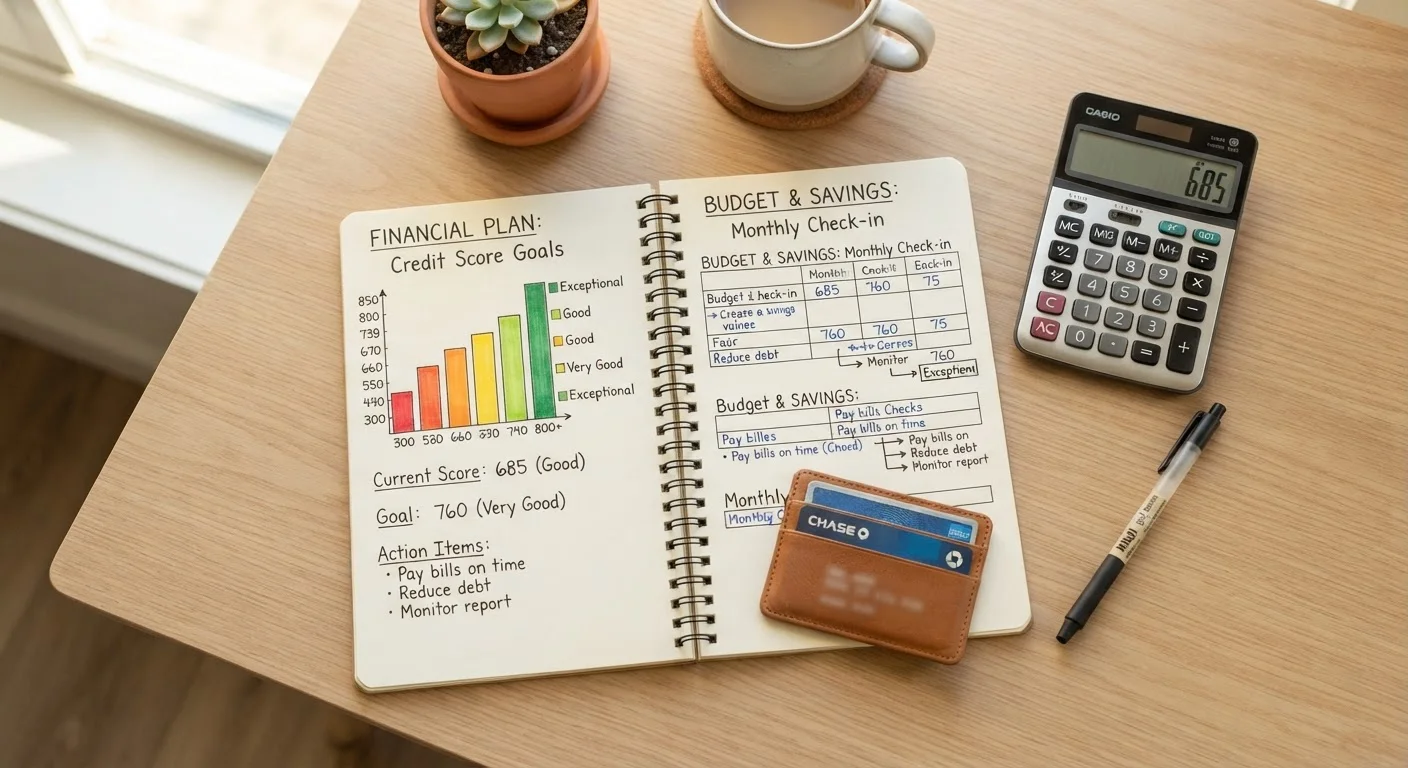 FINANCIAL PLAN:
Credit Score Goals
850
800
739
670
660
550
440
300
300 580 660 690 740 800+
Exceptional
Good
Good
Very Good
Exceptional
Current Score: 685 (Good)
Goal: 760 (Very Good)
Action Items:
• Pay bills on time
• Reduce debt
• Monitor report
BUDGET & SAVINGS:
Monthly Check-in
BUDGET & SAVINGS: Monthly Check-in
Eack-in
Budget
685 760 75
→ Create a savings
Fair 760 760 75
Reduce debt
Monitor 760
Budget & SAVINGS:
Pay bills Checks
Pay billes Pay bills on time
• Pay bills on time (Choed)
Pay bills on
Reduce debt
Monitor report
Monthly
Monthly C
CHASE
CASIO
685
MC M- M+
7 8 9 ÷
4 5 6 ×
C 1 2 3
AC 0 · = +